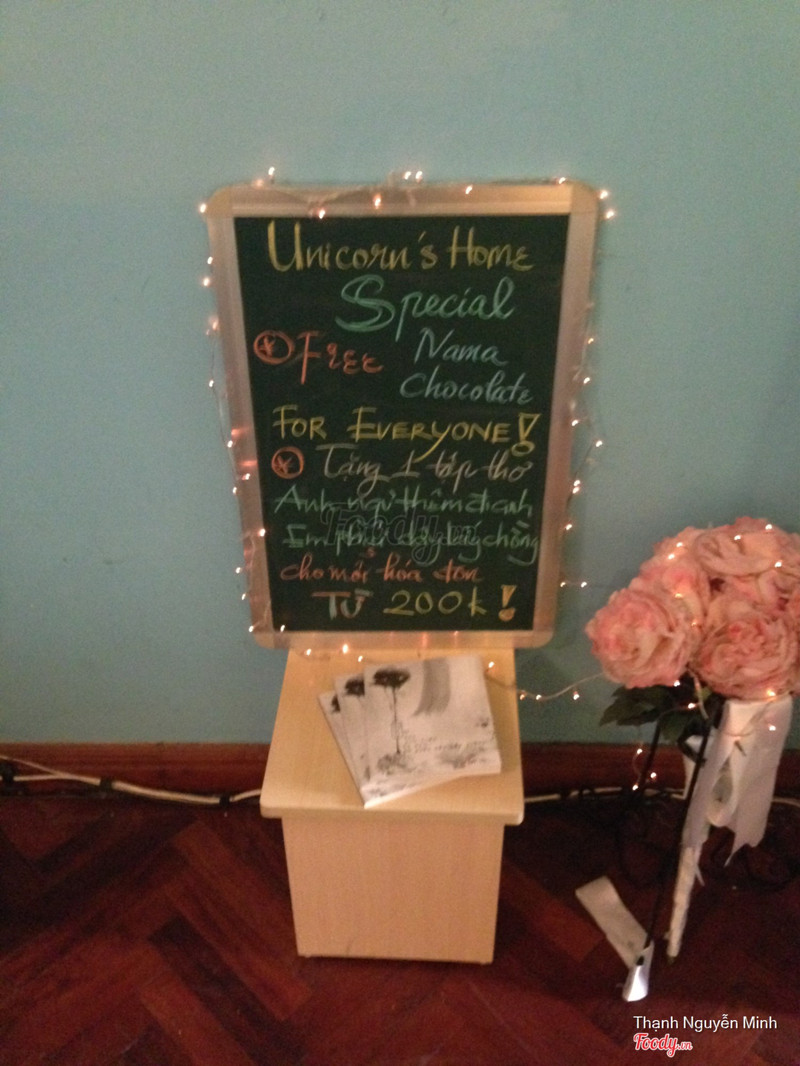 Unicorn's Home
Special
* Free Nama
Chocolate
FOR EVERYONE!
* Tặng 1 tập thơ
Anh ngủ thêm đi anh
Em phải dậy lấy chồng
cho mỗi hóa đơn
TỪ 200k!
Foody.vn
Thạnh Nguyễn Minh
Foody.vn